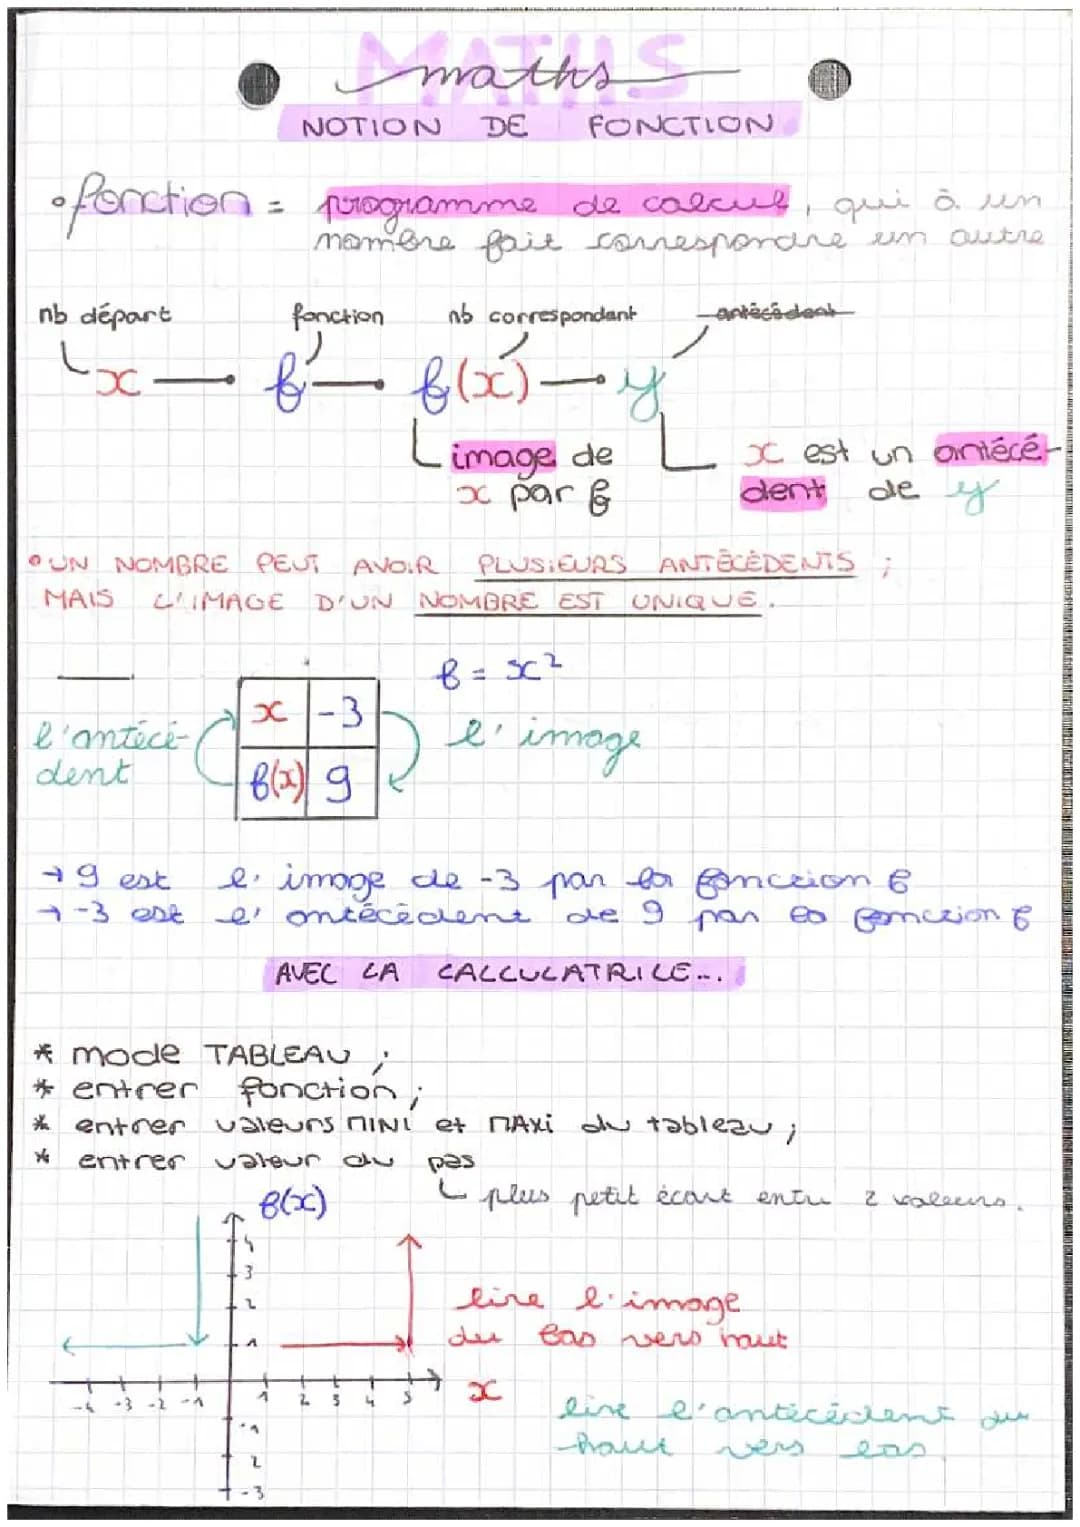 MATHS
maths
NOTION DE FONCTION
• fonction = programme de calcul, qui à un
nombre fait correspondre un autre
nb départ fonction nb correspondant antécédent
x f f(x) y
image de
x par f
x est un antécé-
dent de y
• UN NOMBRE PEUT AVOIR PLUSIEURS ANTÉCÉDENTS ;
MAIS L'IMAGE D'UN NOMBRE EST UNIQUE.
f = x²
x -3
f(x) 9
l'antécé-
dent
l'image
→ 9 est l'image de -3 par la fonction f
→ -3 est l'antécédent de 9 par la fonction f
AVEC LA CALCULATRICE...
* mode TABLEAU ;
* entrer fonction ;
* entrer valeurs MINI et MAXI du tableau ;
* entrer valeur du pas
plus petit écart entre 2 valeurs.
f(x)
4
3
2
1
-4 -3 -2 -1 1 2 3 4 5 x
-1
2
-3
lire l'image
du bas vers haut
lire l'antécédent du
haut vers bas